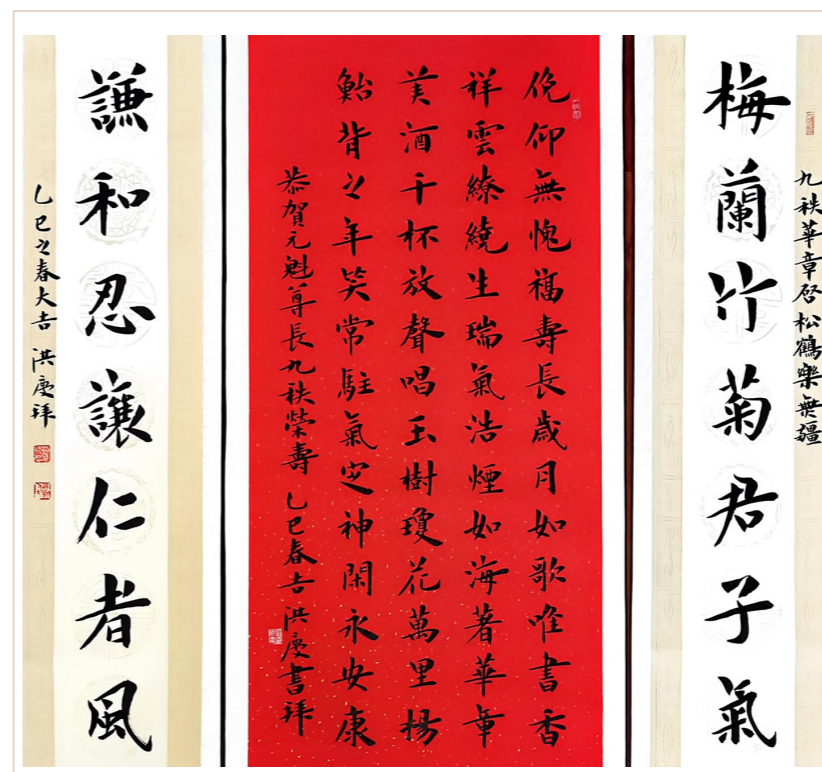 九秩華章啓松鶴樂無疆
梅蘭竹菊君子氣
俛仰無愧福壽長歲月如歌唯書香
祥雲繚繞生瑞氣浩煙如海著華章
美酒千杯放聲唱玉樹瓊花萬里楊
鮐背之年笑常駐氣定神閑永安康
恭賀元魁尊長九秩榮壽 乙巳春吉洪慶書拜
謙和忍讓仁者風
乙巳之春大吉 洪慶拜